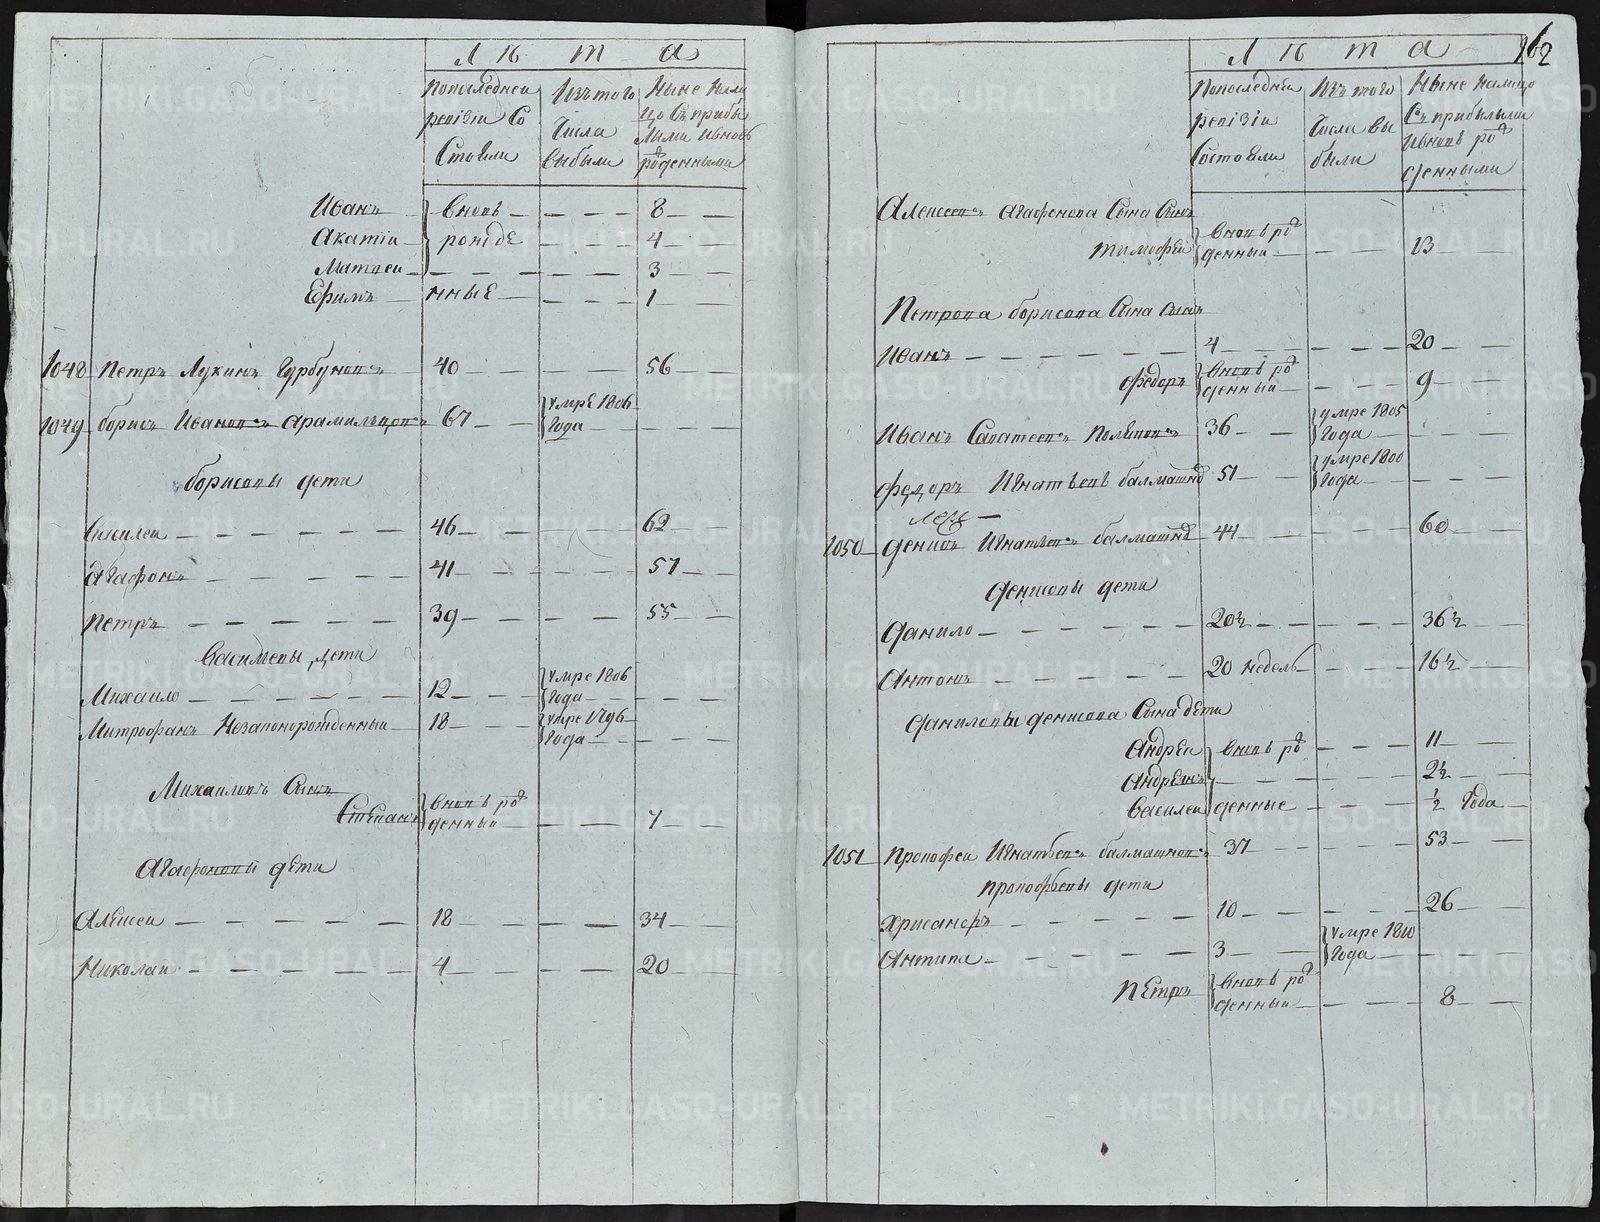 Лѣта
Попоследней ревизiи Состояли
Изътого Числа выбыли
Ныне нали цо Съ прибы лыми ивновь рожденными
Иванъ вновь 8
Акатiи рожде 4
Матвеи 3
Ефимъ нные 1
1048 Петръ Лукинъ Чурбуновъ 40 56
1049 борисъ Ивановъ арамильцовъ 67 умре 1806 Года
борисовы дети
Василеи 46 62
Агафонъ 41 57
Петръ 39 55
Васильевы дети
Михаило 12 умре 1806 Года
Митрофанъ Незаконорожденный 18 умре 1796 Года
Михаиловъ Сынъ
Степанъ вновь рож денный 7
Агафоновы дети
Алексеи 18 34
Николаи 4 20
162
Лѣта
Попоследнеи ревизiи Состояли
Изътого Числа вы были
Ныне налицо Съ прибылыми ивновь рож денными
Алексеевъ агафонова Сына Сынъ
тимофеи вновь рож денный 13
Петрова борисова Сына Сынъ
Иванъ 4 20
федоръ вновь рож денный 9
Иванъ Савατеевъ Полѣновъ 36 умре 1805 Года
федоръ Игнатьевъ балмашно 51 умре 1800 Года
1050 денисъ Игнатьевъ балмашно 44 60
денисовы дети
данило 20½ 36½
Антонъ 20 недель 16½
даниловы денисова Сына дети
Андреи вновь рож 11
Андреянъ 2½
Василеи денные ½ Года
1051 прокофеи Игнатьевъ балмашновъ 37 53
прокофьевы дети
Хрисанфъ 10 26
Антипа 3 умре 1800 Года
петръ вновь рож денный 8